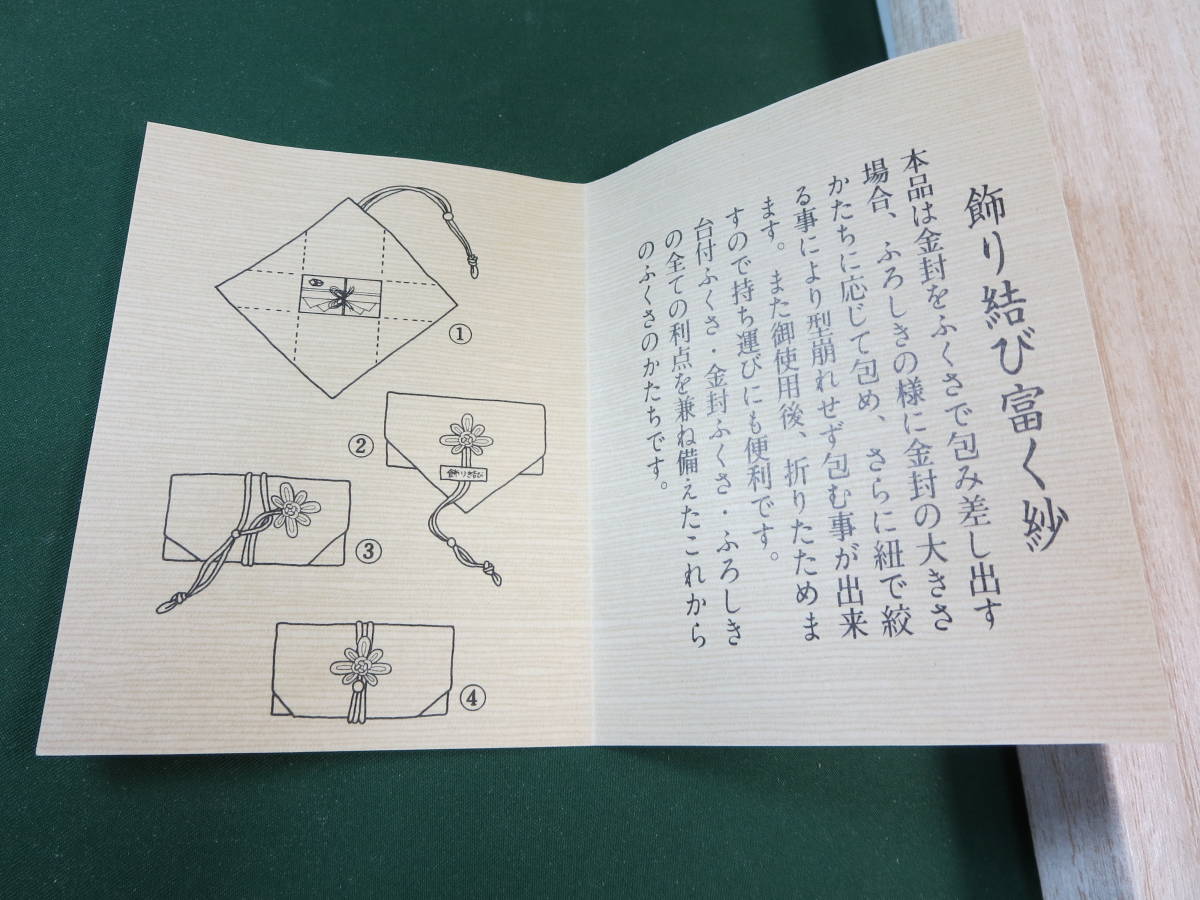 飾り結び富く紗
本品は金封をふくさで包み差し出す
場合、ふろしきの様に金封の大きさ
かたちに応じて包め、さらに紐で絞
る事により型崩れせず包む事が出来
ます。また御使用後、折りたためま
すので持ち運びにも便利です。
台付ふくさ・金封ふくさ・ふろしき
の全ての利点を兼ね備えたこれから
のふくさのかたちです。
①
②
飾り結び
③
④